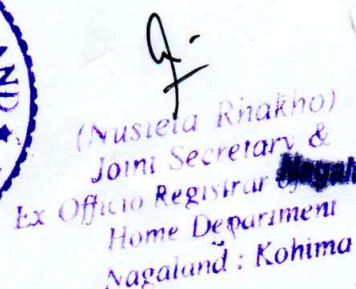 AND ★
(Nusieta Rhakho)
Joint Secretary &
Ex Officio Registrar of
Home Department
Nagaland : Kohima